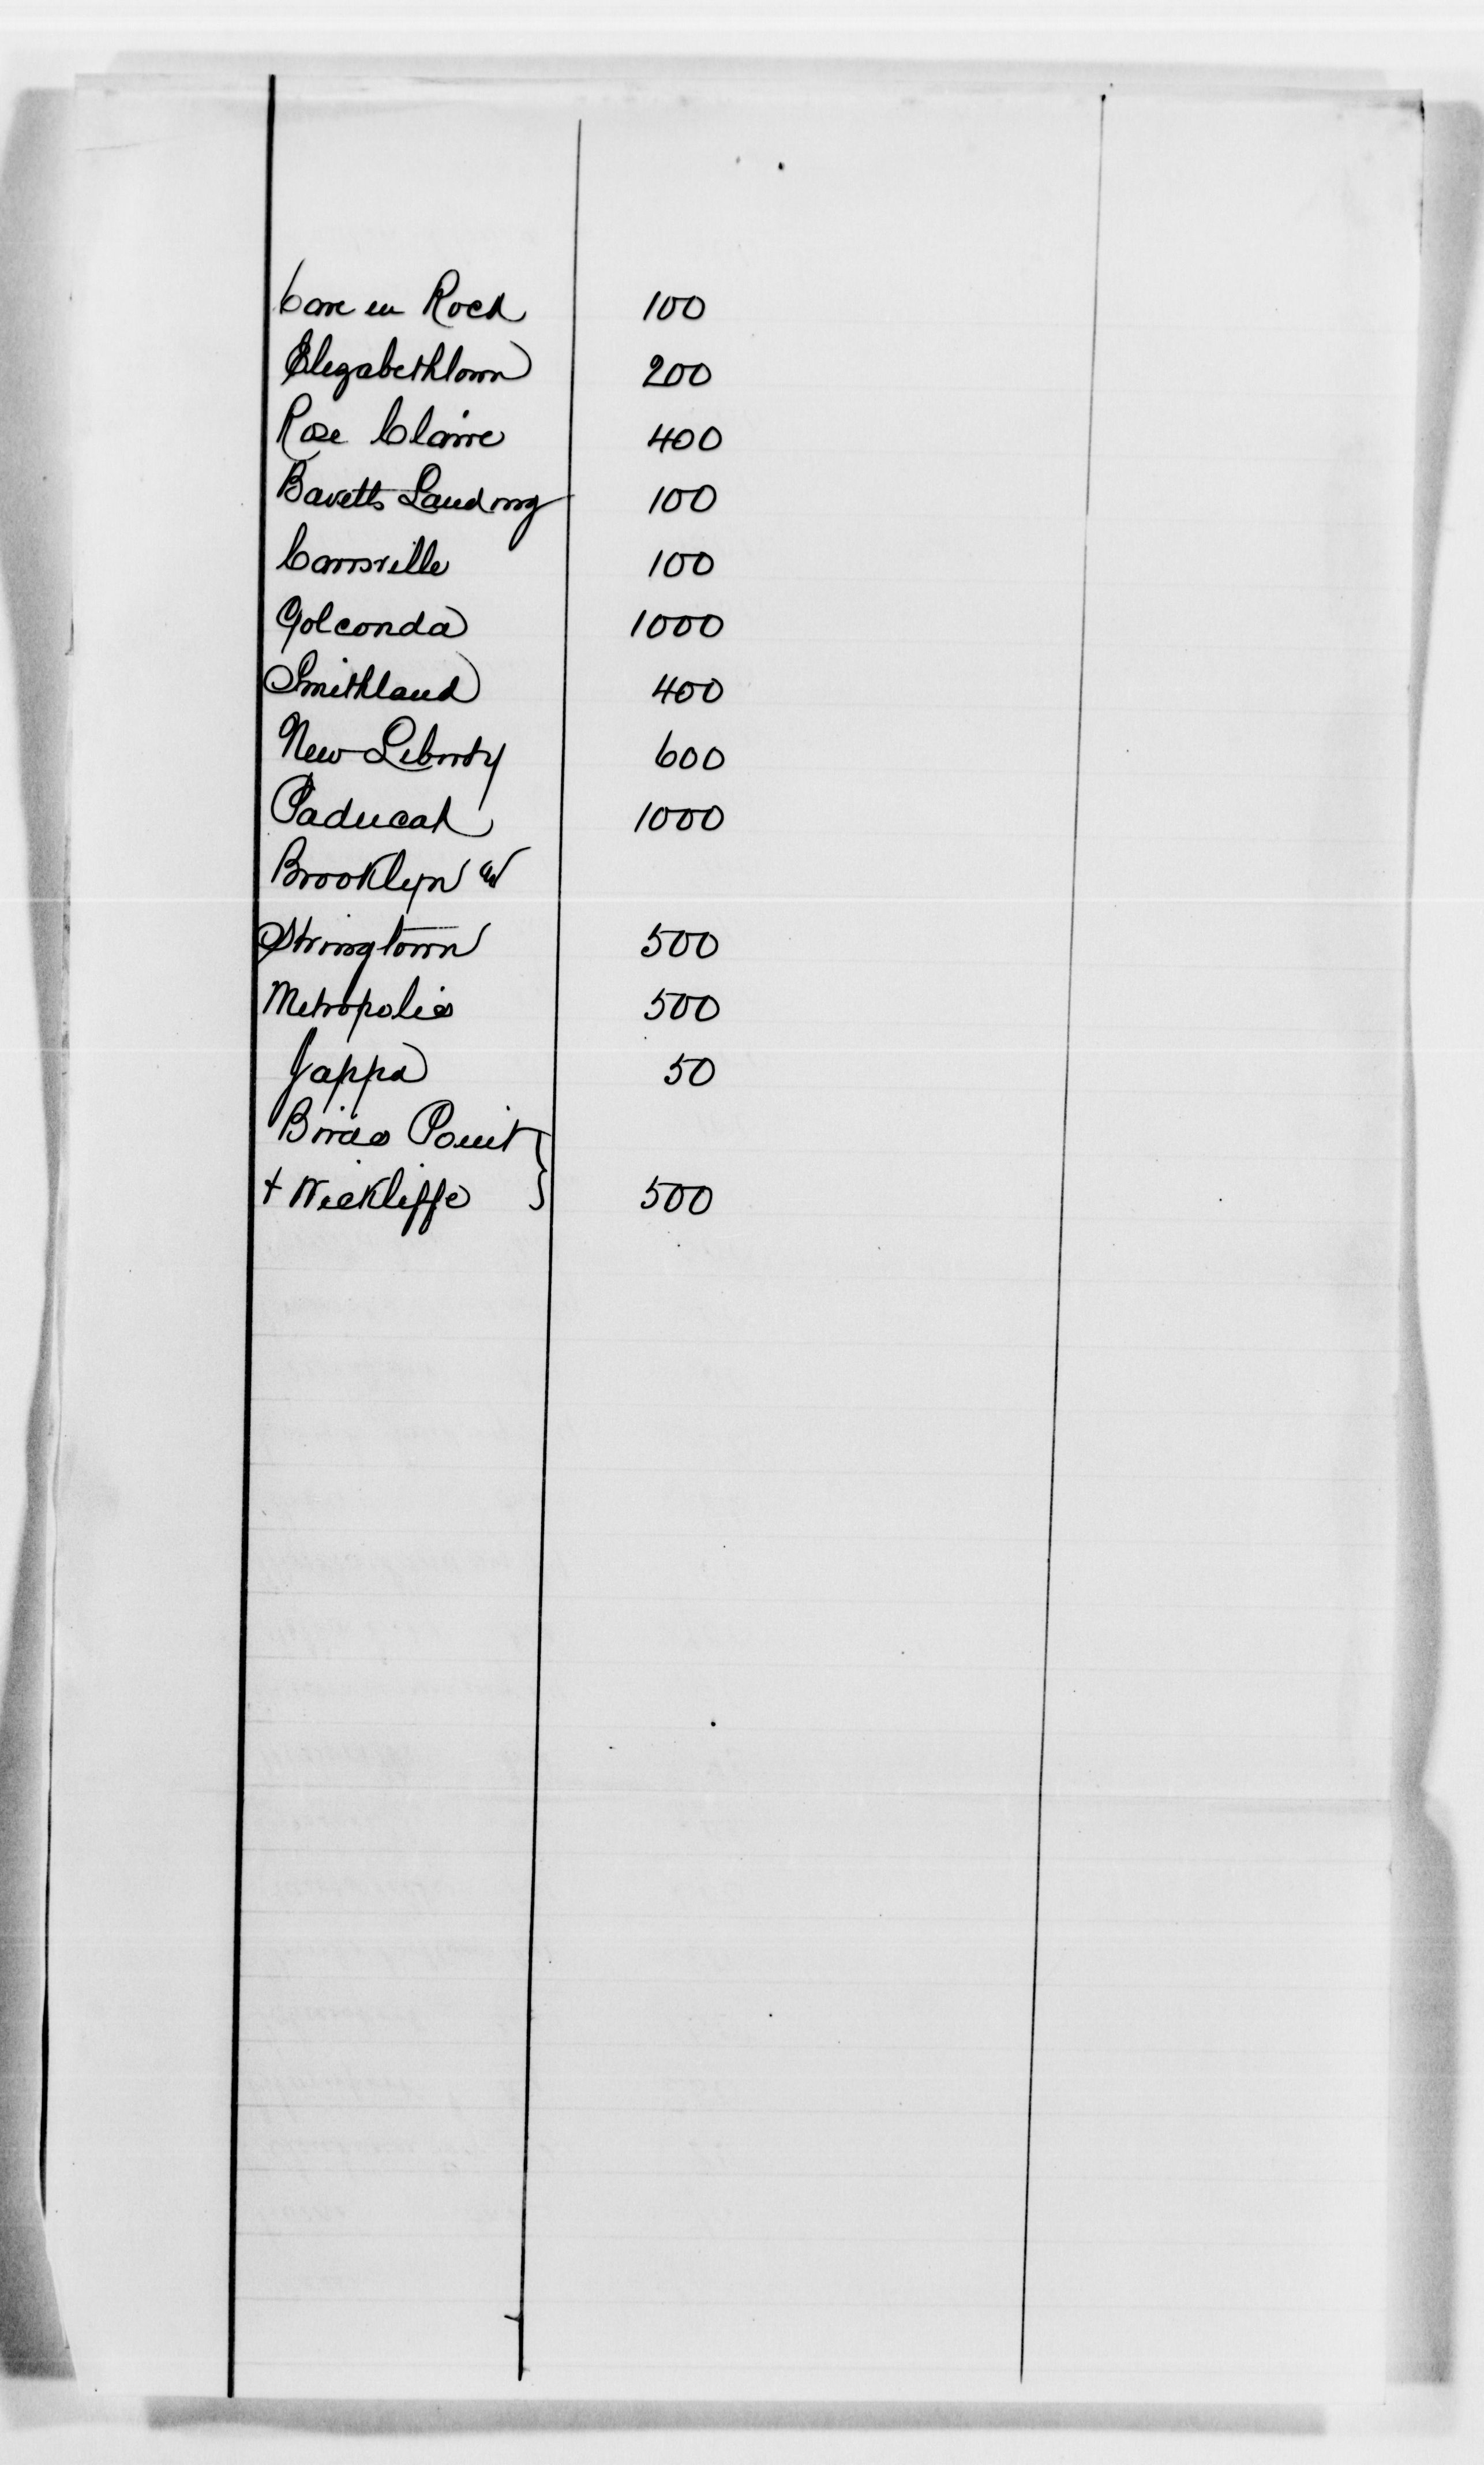 Cave in Rock 100
Elizabethtown 200
Rose Claire 400
Bavetts Landing 100
Carrsville 100
Golconda 1000
Smithland 400
New Liberty 600
Paducah 1000
Brooklyn
Stringtown 500
Metropolis 500
Jappa 50
Birds Point
+ Wickliffe 500